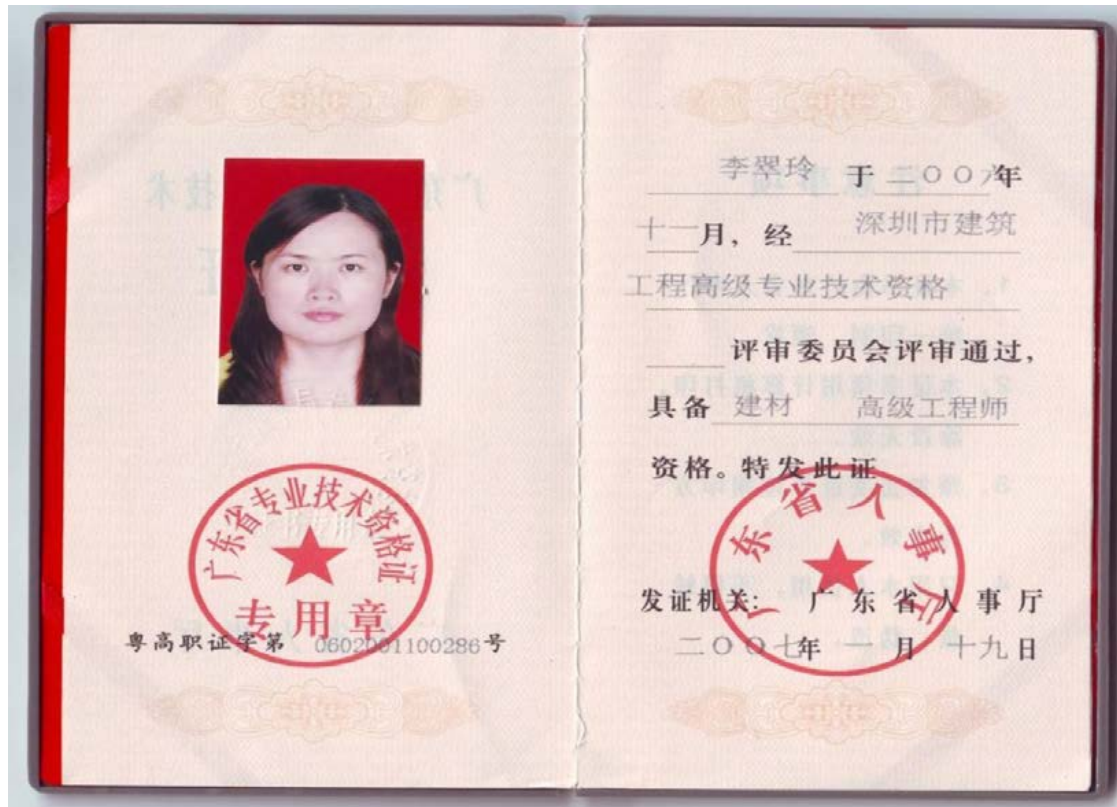 广东省专业技术资格证
专用章
粤高职证字第 0602001100286号
李翠玲 于 二〇〇六年
十一月，经 深圳市建筑
工程高级专业技术资格
评审委员会评审通过，
具备 建材 高级工程师
资格。特发此证
广东省人事厅
发证机关： 广东省人事厅
二〇〇七年 月 十九日